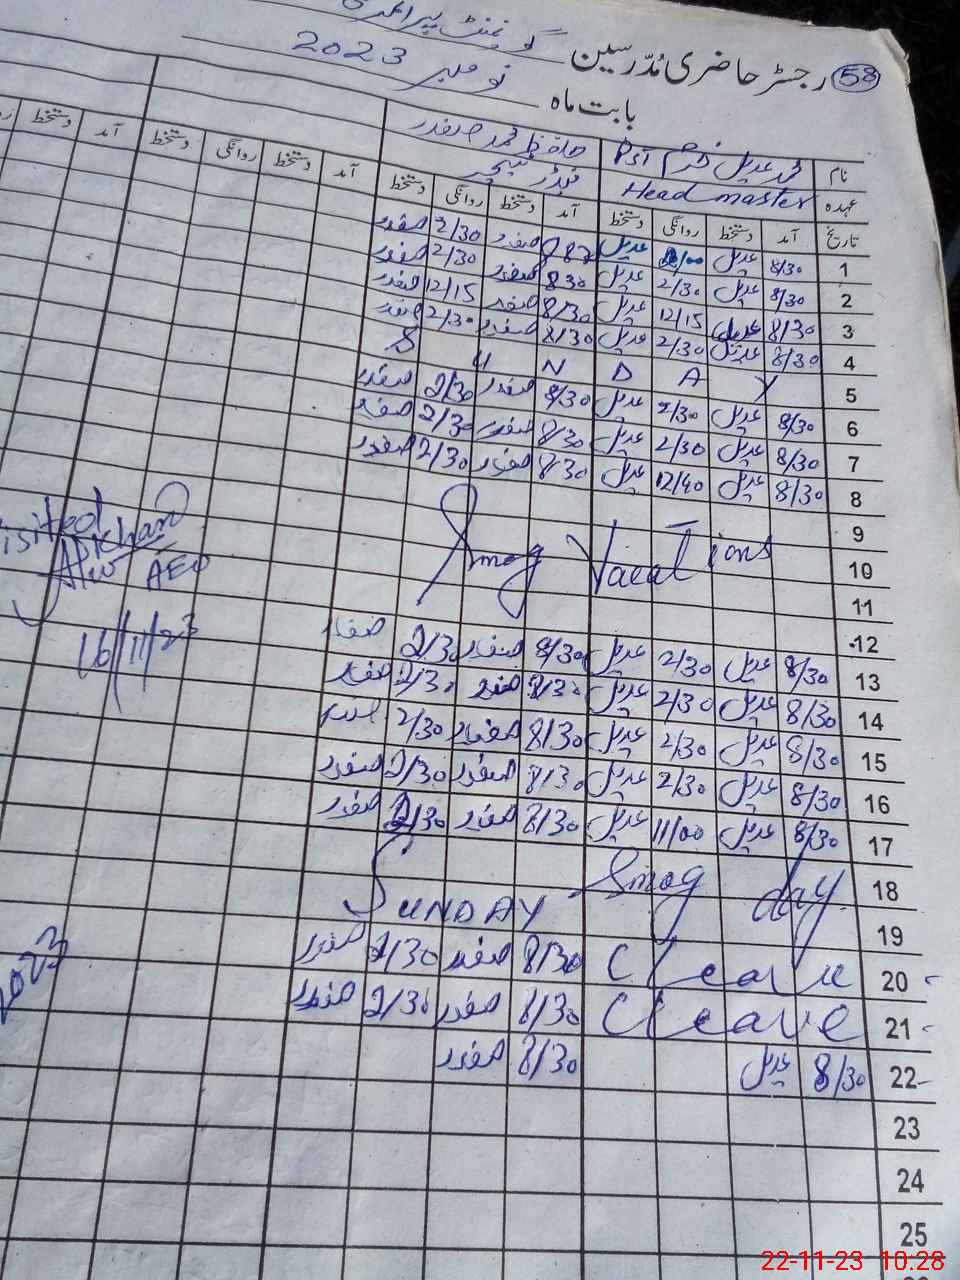 گورنمنٹ پرائمری
رجسٹر حاضری مدرسین 58
بابت ماہ نومبر 2023
نام محمد عدیل خرم PST حافظ محمد صفدر
عہدہ Head master ٹیچر
تاریخ آمد دستخط روانگی دستخط آمد دستخط روانگی دستخط آمد دستخط روانگی دستخط آمد دستخط
1 8/30 عدیل عدیل صفدر 2/30 صفدر
2 8/30 عدیل 2/30 عدیل 8 30 صفدر 2/30 صفدر
3 8/30 عدیل 12/15 عدیل 8/30 صفدر 12/15 صفدر
4 8/30 عدیل 2/30 عدیل 8/30 صفدر 2/30 صفدر
5 S U N D A Y
6 8/30 عدیل 2/30 عدیل 8/30 صفدر 2/30 صفدر
7 8/30 عدیل 2/30 عدیل 8/30 صفدر 2/30 صفدر
8 8/30 عدیل 12/40 عدیل 8/30 صفدر 2/30 صفدر
9
10 Smog Vacations
11
12
13 8/30 عدیل 2/30 عدیل 8/30 صفدر 2/30 صفدر
14 8/30 عدیل 2/30 عدیل 8/30 صفدر 2/30 صفدر
15 8/30 عدیل 2/30 عدیل 8/30 صفدر 2/30 صفدر
16 8/30 عدیل 2/30 عدیل 8/30 صفدر 2/30 صفدر
17 8/30 عدیل 11/00 عدیل 8/30 صفدر 2/30 صفدر
18 Smog day
19 SUNDAY
20 C leave 8/30 صفدر 2/30 صفدر
21 C leave 8/30 صفدر 2/30 صفدر
22 8/30 عدیل 8/30 صفدر
23
24
25
isited
Khan
AEO
16/11/23
2023
22-11-23 10:28